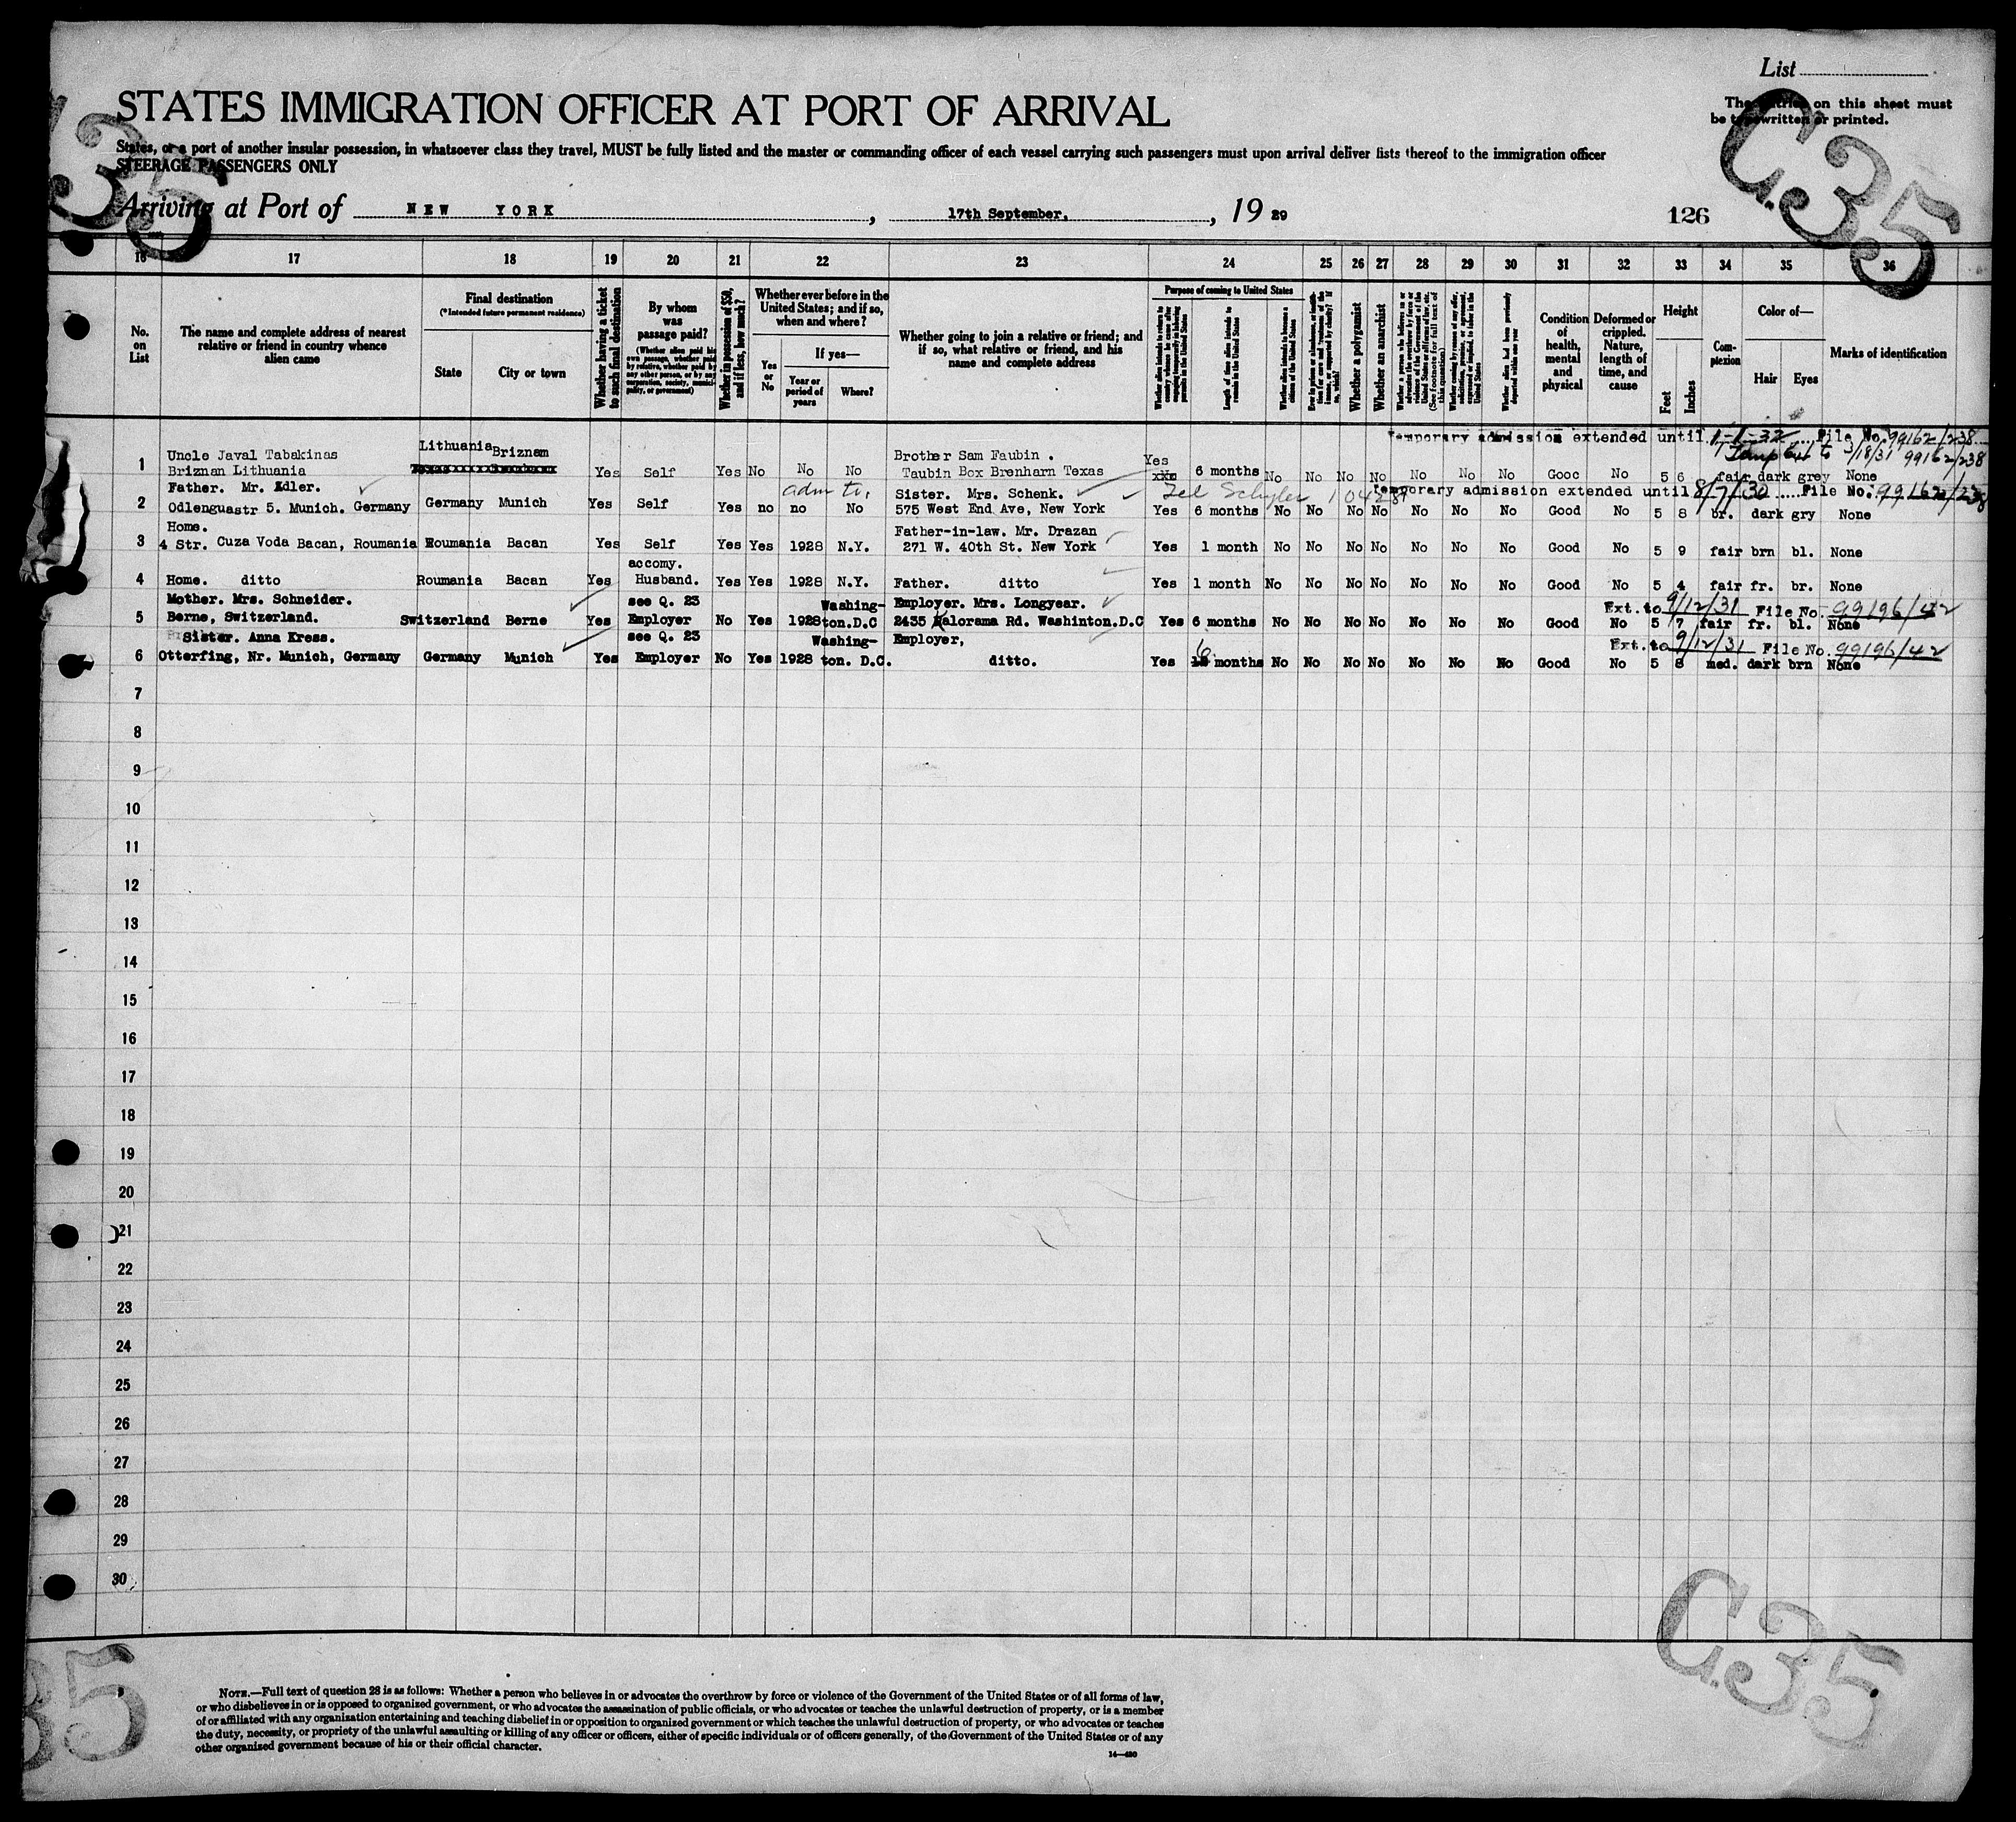 List
STATES IMMIGRATION OFFICER AT PORT OF ARRIVAL
The entries on this sheet must
be typewritten or printed.
States, or a port of another insular possession, in whatsoever class they travel, MUST be fully listed and the master or commanding officer of each vessel carrying such passengers must upon arrival deliver lists thereof to the immigration officer
STEERAGE PASSENGERS ONLY
35
C.35
Arriving at Port of NEW YORK, 17th September, 1929
126
16 17 18 19 20 21 22 23 24 25 26 27 28 29 30 31 32 33 34 35 36
No. on List
The name and complete address of nearest relative or friend in country whence alien came
Final destination
(*Intended future permanent residence)
State
City or town
Whether having a ticket to such final destination
By whom was passage paid?
(Whether alien paid his own passage, whether paid by relative, whether paid by any other person, or by any corporation, society, municipality, or government)
Whether in possession of $50, and if less, how much?
Whether ever before in the United States; and if so, when and where?
Yes or No
If yes—
Year or period of years
Where?
Whether going to join a relative or friend; and if so, what relative or friend, and his name and complete address
Purpose of coming to United States
Length of time alien intends to remain in the United States
Whether alien intends to become a citizen of the United States
Whether a polygamist
Whether an anarchist
Whether alien had been previously deported within one year
Condition of health, mental and physical
Deformed or crippled. Nature, length of time, and cause
Height
Feet
Inches
Complexion
Color of—
Hair
Eyes
Marks of identification
Temporary admission extended until 1-1-32 File No. 99162/238
3/18/31 99162/238
Uncle Javal Tabakinas Lithuania Briznam Brother Sam Faubin . Yes
1 Briznan Lithuania Yes Self Yes No No No Taubin Box Brenharn Texas xxx 6 months No No No No No No No Gooc No 5 6 fair dark grey None
Father. Mr. Adler. adm Sister. Mrs. Schenk. Temporary admission extended until 8/7/30 File No. 99162/238
2 Odlenguastr 5. Munich. Germany Germany Munich Yes Self Yes no no No 575 West End Ave, New York Yes 6 months No No No No No No No Good No 5 8 br. dark gry None
Home. Father-in-law. Mr. Drazan
3 4 Str. Cuza Voda Bacan, Roumania Roumania Bacan Yes Self Yes Yes 1928 N.Y. 271 W. 40th St. New York Yes 1 month No No No No No No No Good No 5 9 fair brn bl. None
accomy.
4 Home. ditto Roumania Bacan Yes Husband. Yes Yes 1928 N.Y. Father. ditto Yes 1 month No No No No No No No Good No 5 4 fair fr. br. None
Mother. Mrs. Schneider. see Q. 23 Washing- Employer. Mrs. Longyear. Ext. to 9/12/31 File No. 99196/42
5 Berne, Switzerland. Switzerland Berne Yes Employer No Yes 1928 ton.D.C 2435 Kalorama Rd. Washinton.D.C Yes 6 months No No No No No No No Good No 5 7 fair fr. bl. None
Sister. Anna Kress. see Q. 23 Washing- Employer, Ext. to 9/12/31 File No. 99196/42
6 Otterfing, Nr. Munich, Germany Germany Munich Yes Employer No Yes 1928 ton. D.C. ditto. Yes 6 months No No No No No No No Good No 5 8 med. dark brn None
7
8
9
10
11
12
13
14
15
16
17
18
19
20
21
22
23
24
25
26
27
28
29
30
35
C.35
NOTE.—Full text of question 28 is as follows: Whether a person who believes in or advocates the overthrow by force or violence of the Government of the United States or of all forms of law,
or who disbelieves in or is opposed to organized government, or who advocates the assassination of public officials, or who advocates or teaches the unlawful destruction of property, or is a member
of or affiliated with any organization entertaining and teaching disbelief in or opposition to organized government or which teaches the unlawful destruction of property, or who advocates or teaches
the duty, necessity, or propriety of the unlawful assaulting or killing of any officer or officers, either of specific individuals or of officers generally, of the Government of the United States or of any
other organized government because of his or their official character.
14—480